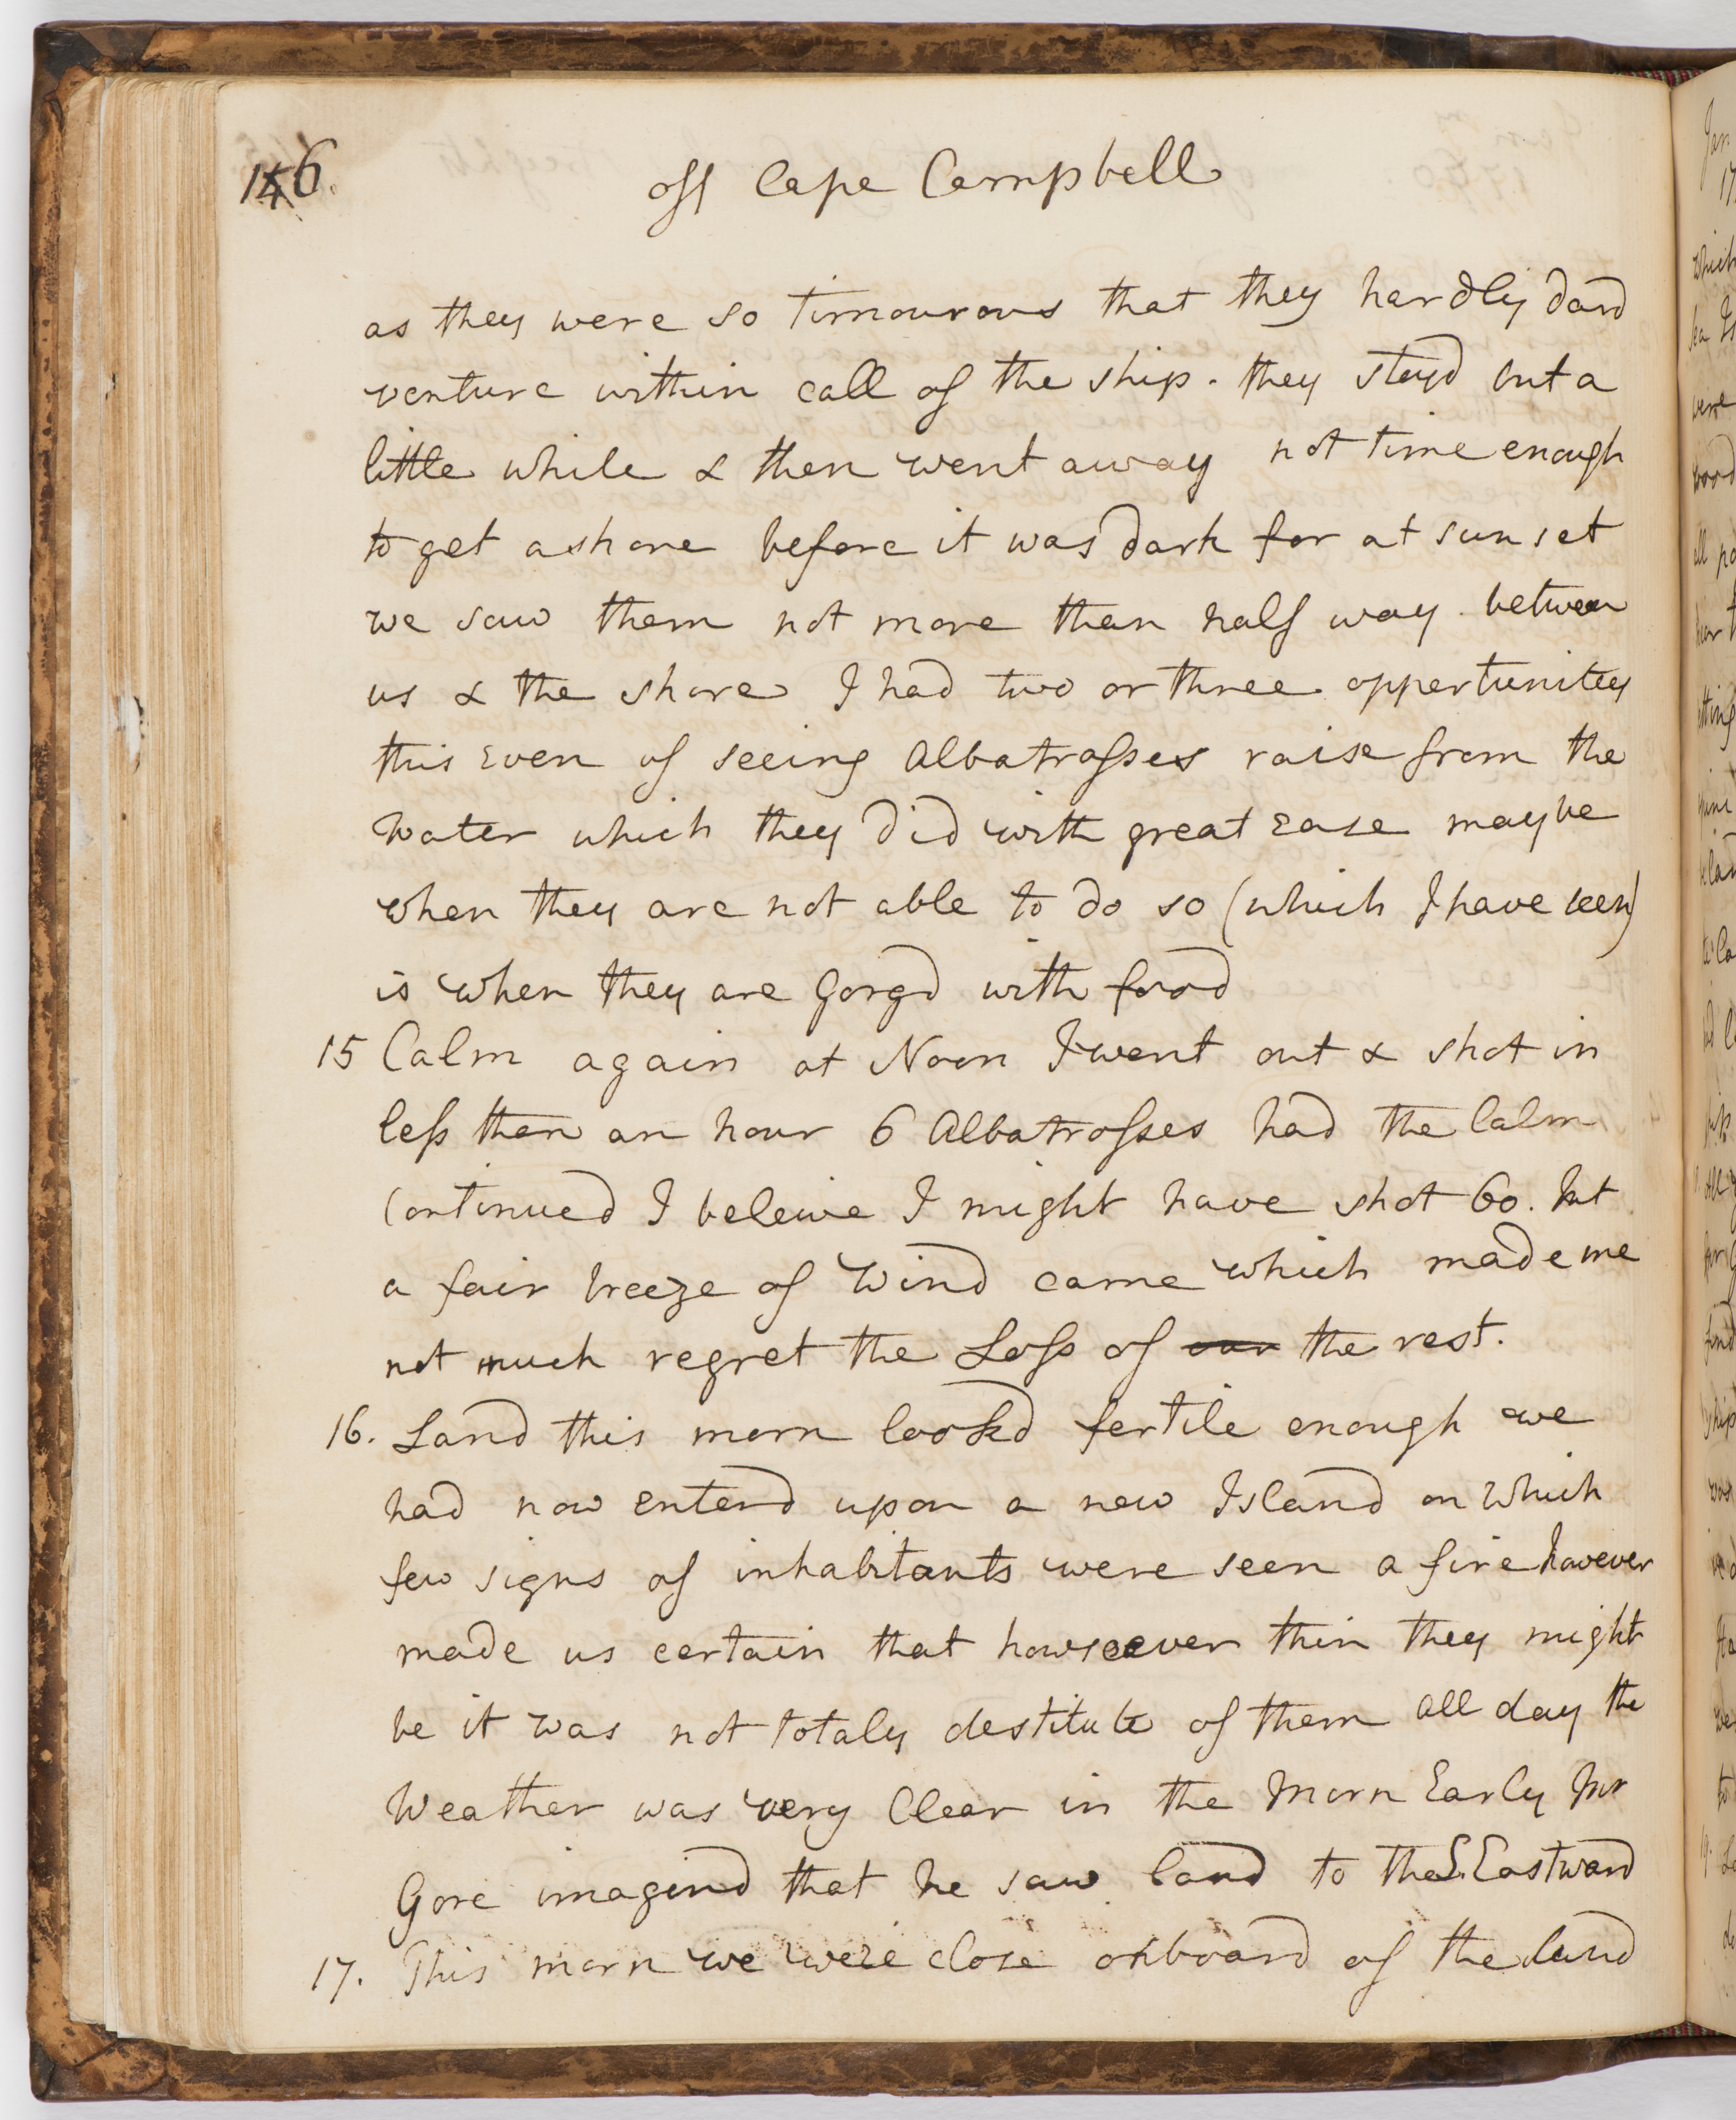 146.
off Cape Campbell
as they were so timourous that they hardly dard
venture within call of the ship. they stayd but a
little while & then went away not time enough
to get ashore before it was dark for at sunset
we saw them not more than half way between
us & the shore I had two or three oppertunitey
this Even of seeing Albatrosses raise from the
water which they did with great ease maybe
when they are not able to do so (which I have seen)
is when they are Gorgd with food
15 Calm again at Noon I went out & shot in
less than an hour 6 Albatrosses had the Calm
Continued I beleive I might have shot 60. but
a fair breeze of Wind came which made me
not much regret the Loss of our the rest.
16. Land this morn lookd fertile enough we
had now enterd upon a new Island on which
few signs of inhabitants were seen a fire however
made us certain that howsoever thin they might
be it was not totaly destitute of them all day the
Weather was very Clear in the Morn Early Mr
Gore imagind that he saw land to the S. Eastward
17. This morn we were close onboard of the land